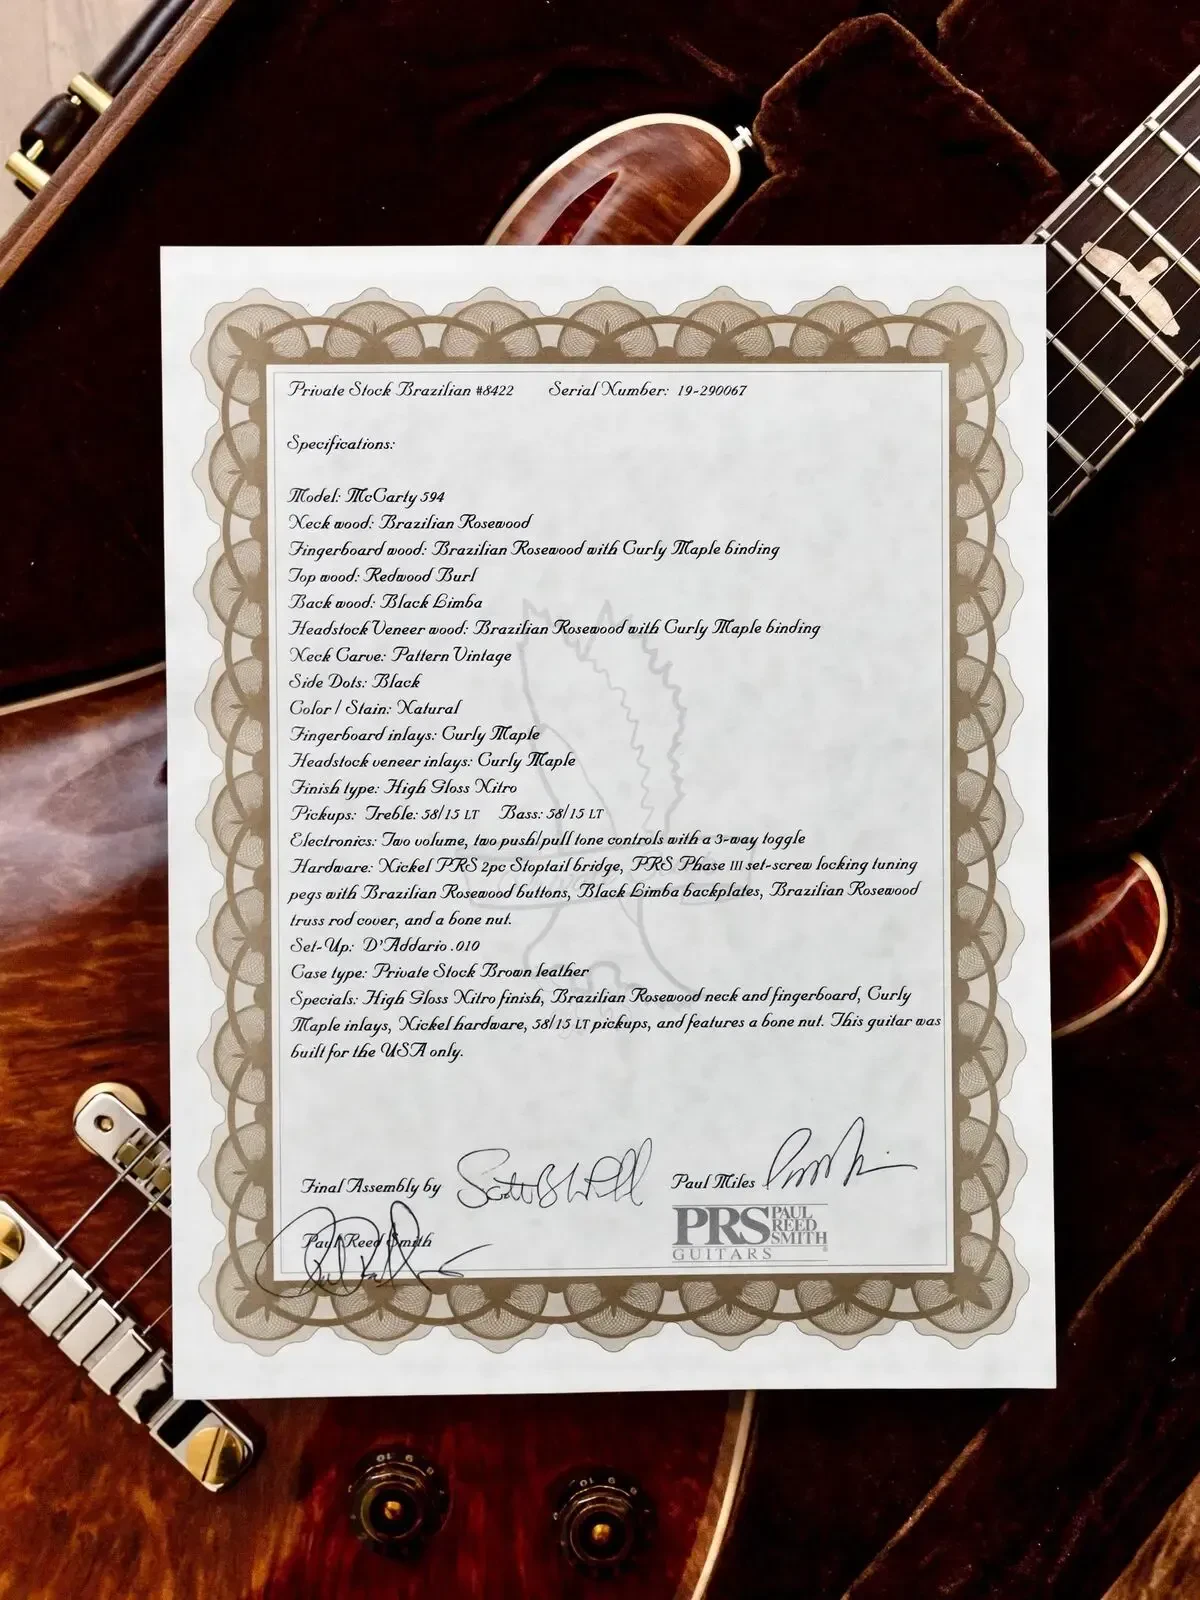 Private Stock Brazilian #8422 Serial Number: 19-290067
Specifications:
Model: McCarty 594
Neck wood: Brazilian Rosewood
Fingerboard wood: Brazilian Rosewood with Curly Maple binding
Top wood: Redwood Burl
Back wood: Black Limba
Headstock Veneer wood: Brazilian Rosewood with Curly Maple binding
Neck Carve: Pattern Vintage
Side Dots: Black
Color / Stain: Natural
Fingerboard inlays: Curly Maple
Headstock veneer inlays: Curly Maple
Finish type: High Gloss Nitro
Pickups: Treble: 58/15 LT Bass: 58/15 LT
Electronics: Two volume, two push/pull tone controls with a 3-way toggle
Hardware: Nickel PRS 2pc Stoptail bridge, PRS Phase III set-screw locking tuning
pegs with Brazilian Rosewood buttons, Black Limba backplates, Brazilian Rosewood
truss rod cover, and a bone nut.
Set-Up: D'Addario .010
Case type: Private Stock Brown leather
Specials: High Gloss Nitro finish, Brazilian Rosewood neck and fingerboard, Curly
Maple inlays, Nickel hardware, 58/15 LT pickups, and features a bone nut. This guitar was
built for the USA only.
Final Assembly by Paul Miles
Paul Reed Smith
PRS PAUL REED SMITH®
GUITARS